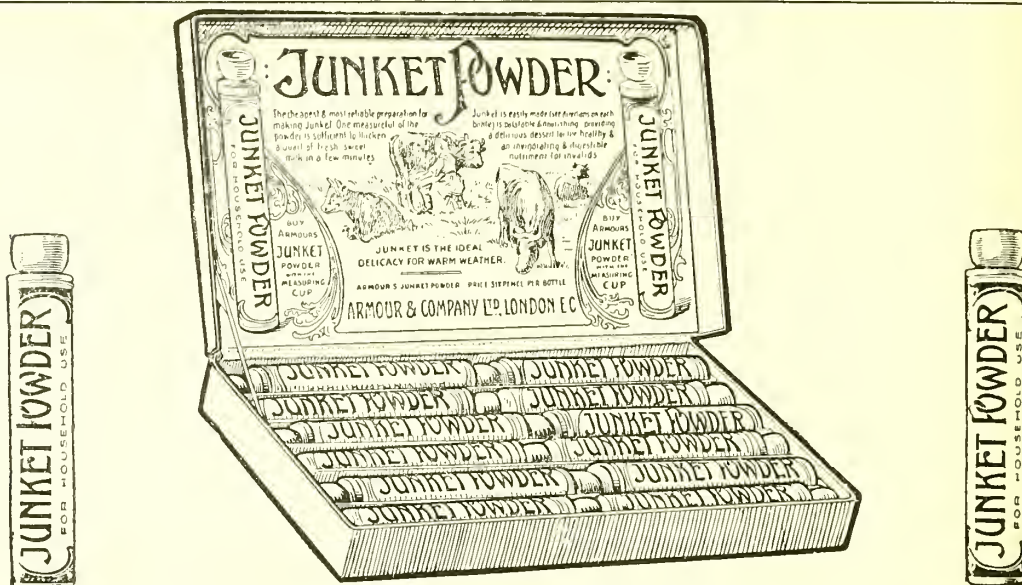 JUNKET POWDER
The cheapest & most reliable preparation for
making Junket. One measureful of the
powder is sufficient to thicken
a quart of fresh sweet
milk in a few minutes
Junket is easily made (see directions on each
bottle) is palatable & nourishing providing
a delicious dessert for the healthy &
an invigorating & digestible
nutriment for invalids
JUNKET POWDER
FOR HOUSEHOLD USE
JUNKET POWDER
FOR HOUSEHOLD USE
BUY
ARMOURS
JUNKET
POWDER
WITH THE
MEASURING
CUP
BUY
ARMOURS
JUNKET
POWDER
WITH THE
MEASURING
CUP
JUNKET IS THE IDEAL
DELICACY FOR WARM WEATHER.
ARMOUR'S JUNKET POWDER PRICE SIXPENCE PER BOTTLE
ARMOUR & COMPANY LTD. LONDON E C
JUNKET POWDER
JUNKET POWDER
JUNKET POWDER
JUNKET POWDER
JUNKET POWDER
JUNKET POWDER
JUNKET POWDER
JUNKET POWDER
JUNKET POWDER
JUNKET POWDER
JUNKET POWDER
JUNKET POWDER
JUNKET POWDER
FOR HOUSEHOLD USE
JUNKET POWDER
FOR HOUSEHOLD USE